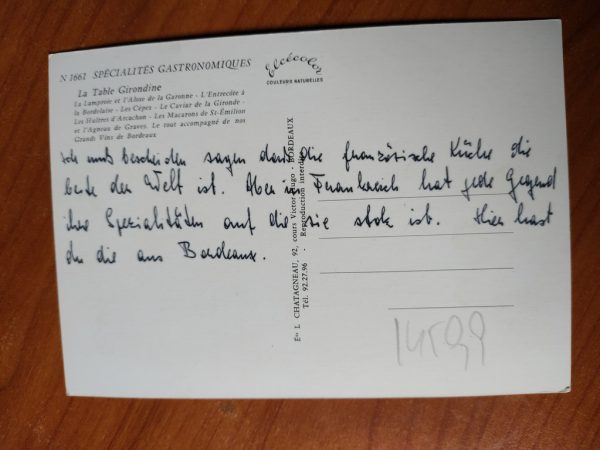 N 1661 SPÉCIALITÉS GASTRONOMIQUES
La Table Girondine
La Lamproie et l'Alose de la Garonne - L'Entrecôte à
la Bordelaise - Les Cèpes - Le Caviar de la Gironde -
Les Huîtres d'Arcachon - Les Macarons de St-Émilion
et l'Agneau de Graves. Le tout accompagné de nos
Grands Vins de Bordeaux
elcécolor
COULEURS NATURELLES
Ich muß bescheiden sagen daß die französische Küche die
beste der Welt ist. Aber in Frankreich hat jede Gegend
ihre Spezialitäten auf die sie stolz ist. Hier hast
du die aus Bordeaux.
Éts L. CHATAGNEAU, 92, cours Victor-Hugo - BORDEAUX
Tél. 92.27.96 - Reproduction interdite
14599